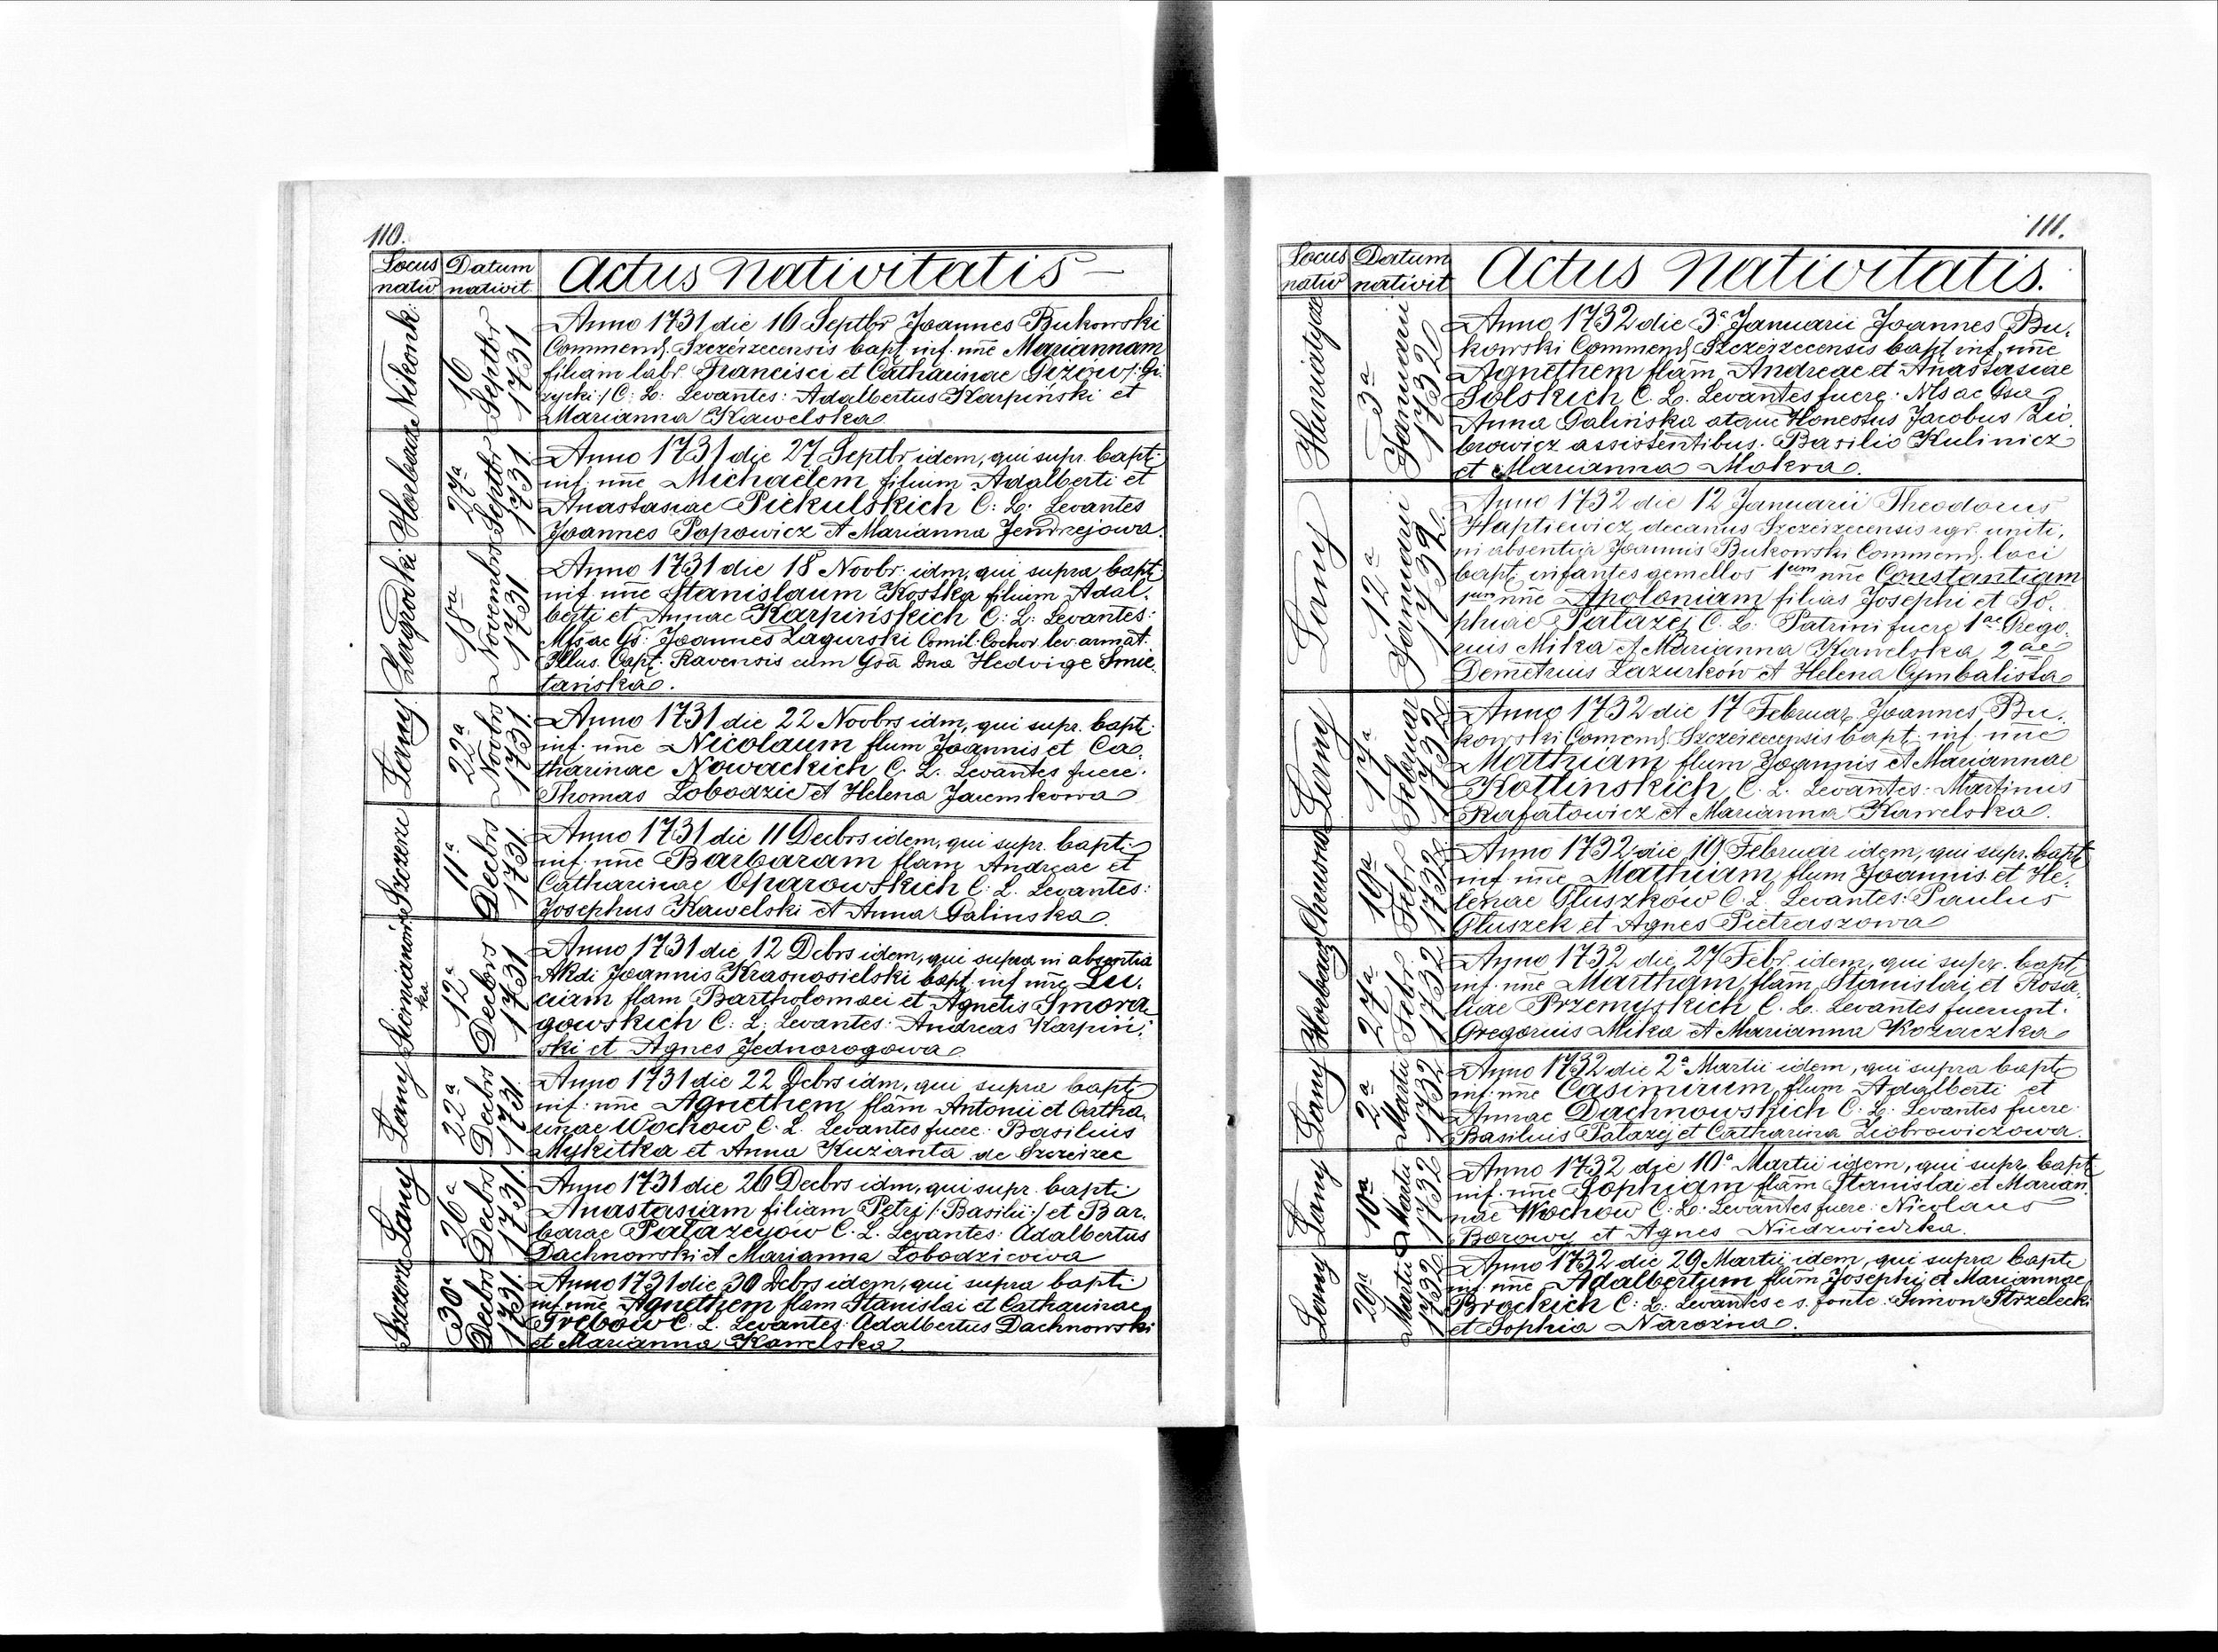 110.
Locus nativ
Datum nativit
Actus nativitatis
Nikonk.
16 Septbr 1731
Anno 1731 die 16 Septbr Joannes Bukowski
Commend. Szczeirzecensis bapt. inf. nne Mariannam
filiam labr. Francisci et Catharinae Gizow /: Gi
zycki :/ C: L: Levantes: Adalbertus Karpiński et
Marianna Kawelska
Horbacze
27a Septbr 1731
Anno 1731 die 27 Septbr idem, qui supr. bapt:
inf. nne Michaelem filium Adalberti et
Anastasiae Piekulskich C: L: Levantes
Joannes Popowicz et Marianna Jendrejowa.
Zagrodki
18a Novembr 1731
Anno 1731 die 18 Novbr: idm, qui supra bapt:
inf. nne Stanislaum Kostka filium Adal.
berti et Annae Karpińskich C: L: Levantes:
Mfsac Gs: Joannes Zagurski Comil: Cochor. lev. armat.
Illus. Capt. Ravensis cum Gsa Dna Hedvige Smie.
tańska.
Łany.
22a Novbrs 1731.
Anno 1731 die 22 Novbrs idm, qui supr. bapt:
inf. nne Nicolaum flum Joannis et Ca.
tharinae Nowackich C. L. Levantes fuere.
Thomas Łobodzic et Helena Jaremkowa
Szczerze
11a Decbrs 1731.
Anno 1731 die 11 Decbrs idem, qui supr. bapt:
inf. nne Barbaram flam Andreae et
Catharinae Oparowskich C. L. Levantes:
Josephus Kawelski et Anna Galinska
Siemianow
ka
12a Decbrs 1731
Anno 1731 die 12 Dcbrs idem, qui supra in absentia
Akdi Joannis Krasnosielski bapt. inf. nne Lu.
ciam flam Bartholomaei et Agnetis Smora
gowskich C: L: Levantes: Andreas Karpiń:
ski et Agnes Jednorogowa
Łany
22a Decbrs 1731.
Anno 1731 die 22 Dcbrs idm, qui supra bapt:
inf. nne Agnethem flam Antonii et Catha.
rinae Wochow C. L. Levantes fuere: Basilius
Mykitka et Anna Kuzianta de Szczeirzec
Łany
26a Decbrs 1731.
Anno 1731 die 26 Decbrs idm, qui supr. bapt:
Anastasiam filiam Petri /: Basilii :/ et Bar.
barae Pałazeyów C. L. Levantes: Adalbertus
Dachnowski et Marianna Łobodzicowa
Szczerze
30a Decbrs 1731.
Anno 1731 die 30 Dcbrs idem, qui supra bapt:
inf. nne Agnethem flam Stanislai et Catharinae
Grebow C. L. Levantes: Adalbertus Dachnowski
et Marianna Kawelska
111.
Locus nativ
Datum nativit
Actus nativitatis.
3a Januarii 1732
Anno 1732 die 3a Januarii Joannes Bu.
kowski Commend. Szczeirzecensis bapt inf. nne
Agnethem flam Andreae et Anastasiae
Solskich C. L. Levantes fuere: Mfsac Gsa
Anna Galińska atque Honestus Jacobus Zio
browicz assistentibus. Basilio Kulinicz
et Marianna Mokra.
Łany
12a Januarii 1732
Anno 1732 die 12 Januarii Theodorus
Haptiewicz decanus Szczeirzecensis rgr. uniti,
in absentia Joannis Bukowski Commend. loci
bapt. infantes gemellos 1um nne Constantiam
nne Apoloniam filias Josephi et So.
phiae Pałazej C. L: Patrini fuere 1ae Grego.
rius Mika et Marianna Kawelska 2ae
Demetrius Łazurków et Helena Cymbalista
Łany
17a Februar 1732
Anno 1732 die 17 Februar. Joannes Bu.
kowski Comend. Szczeirzecensis bapt. inf. nne
Mathiam flum Joannis et Mariannae
Kotlinskich C. L. Levantes: Martinus
Rafałowicz et Marianna Kawelska.
19a Febr 1732
Anno 1732 die 19 Februar idem, qui supr. bapt
inf. nne Mathiam flum Joannis et He.
lenae Głuszków C. L. Levantes: Paulus
Głuszek et Agnes Pietraszowa
Horbacz
27a Febr. 1732
Anno 1732 die 27 Febr. idem, qui supr. bapt
inf. nne Martham flam Stanislai et Rosa.
liae Przemyskich C. L. Levantes fuerunt.
Gregorius Mika et Marianna Kozaczka
Łany
2a Martii 1732
Anno 1732 die 2a Martii idem, qui supra bapt
inf. nne Casimirum flum Adalberti et
Annae Dachnowskich C. L. Levantes fuere:
Basilius Pałazej et Catharina Ziobrowiczowa.
Łany
10a Martii 1732
Anno 1732 die 10a Martii idem, qui supr. bapt
inf. nne Sophiam flam Stanislai et Marian.
nae Wochow C: L: Levantes fuere: Nicolaus
Borowy et Agnes Niedzwiedzka.
Łany
29a Martii 1732
Anno 1732 die 29 Martii idem, qui supra bapt
inf. nne Adalbertum flum Josephi et Mariannae
Brockich C: L: Levantes e s. fonte: Simon Strzelecki
et Sophia Narozna.